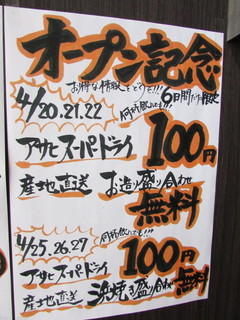 オープン記念
お得な情報をどうぞ!!! 6日間だけ限定
4/20.21.22 何杯飲んでも!!!
アサヒスーパードライ 100円
産地直送 お造り盛り合わせ 無料
4/25.26.27 何杯飲んでも!!!
アサヒスーパードライ 100円
産地直送 浜焼き盛り合わせ 無料